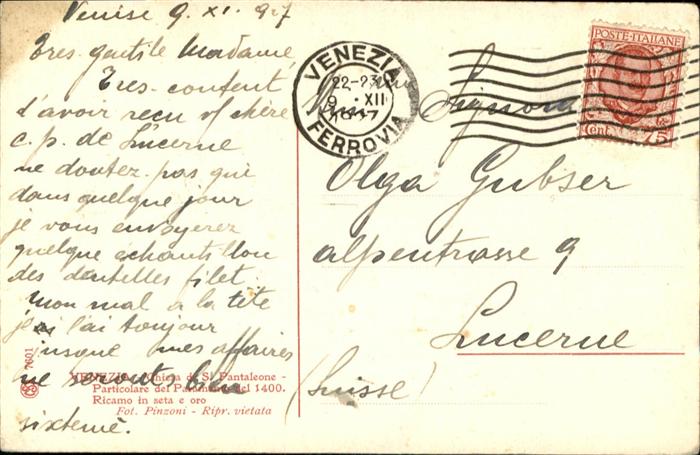 Venise 9. XI. 927
Tres gentile Madame,
Tres content
d'avoir reçu v/ chère
c. p. de Lucerne
ne doutez pas que
dans quelque jour
je vous envoyerez
quelque échantillon
des dentelles filet.
Mon mal a la tête
j'ai l'ai toujour
jusque mes affaires
ne seront bien
sixtemé.
7601
VENEZIA - Chiesa di S. Pantaleone -
Particolare del Paramento del 1400.
Ricamo in seta e oro
Fot. Pinzoni - Ripr. vietata
VENEZIA
22-23
9 XII
FERROVIA
POSTE ITALIANE
Cent. 75
Signora
Olga Gubser
Alpenstrasse 9
Lucerne
(Suisse)